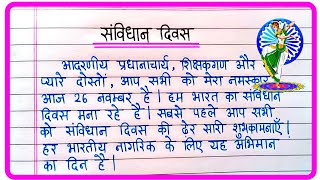 संविधान दिवस
आदरणीय प्रधानाचार्य, शिक्षकगण और
प्यारे दोस्तों, आप सभी को मेरा नमस्कार
आज 26 नवम्बर है। हम भारत का संविधान
दिवस मना रहे हैं। सबसे पहले आप सभी
को संविधान दिवस की ढेर सारी शुभकामनाएँ।
हर भारतीय नागरिक के लिए यह अभिमान
का दिन है।